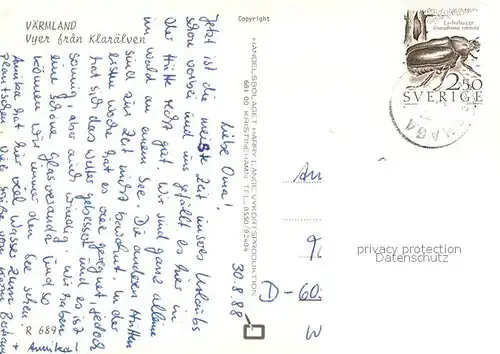 VÄRMLAND
Vyer från Klarälven
Copyright
Läderbagge
SVERIGE
2.50
HANDELSBOLAGET HARRY LANGE VYKORTSPRODUKTION
681 00 KRISTINEHAMN TEL. 0550/82494
30.8.88
Liebe Oma!
Jetzt ist die meiste Zeit unseres Urlaubs
schon vorbei und uns gefällt es hier in
der Hütte recht gut. Wir sind ganz alleine
im Wald an einem See. Die anderen Hütten
sind zur Zeit nicht bewohnt. In der
letzten Woche hat es viel geregnet, jedoch
hat sich das Wetter gebessert und es ist
sonnig aber auch windig. Wir haben
eine schöne Glasveranda und so
können wir immer den See sehen
Annika hat hier viel Wasser zum
Plantschen. Viele Grüße von
+ Annika!
An
D-60
W
privacy protection
Datenschutz
R 689